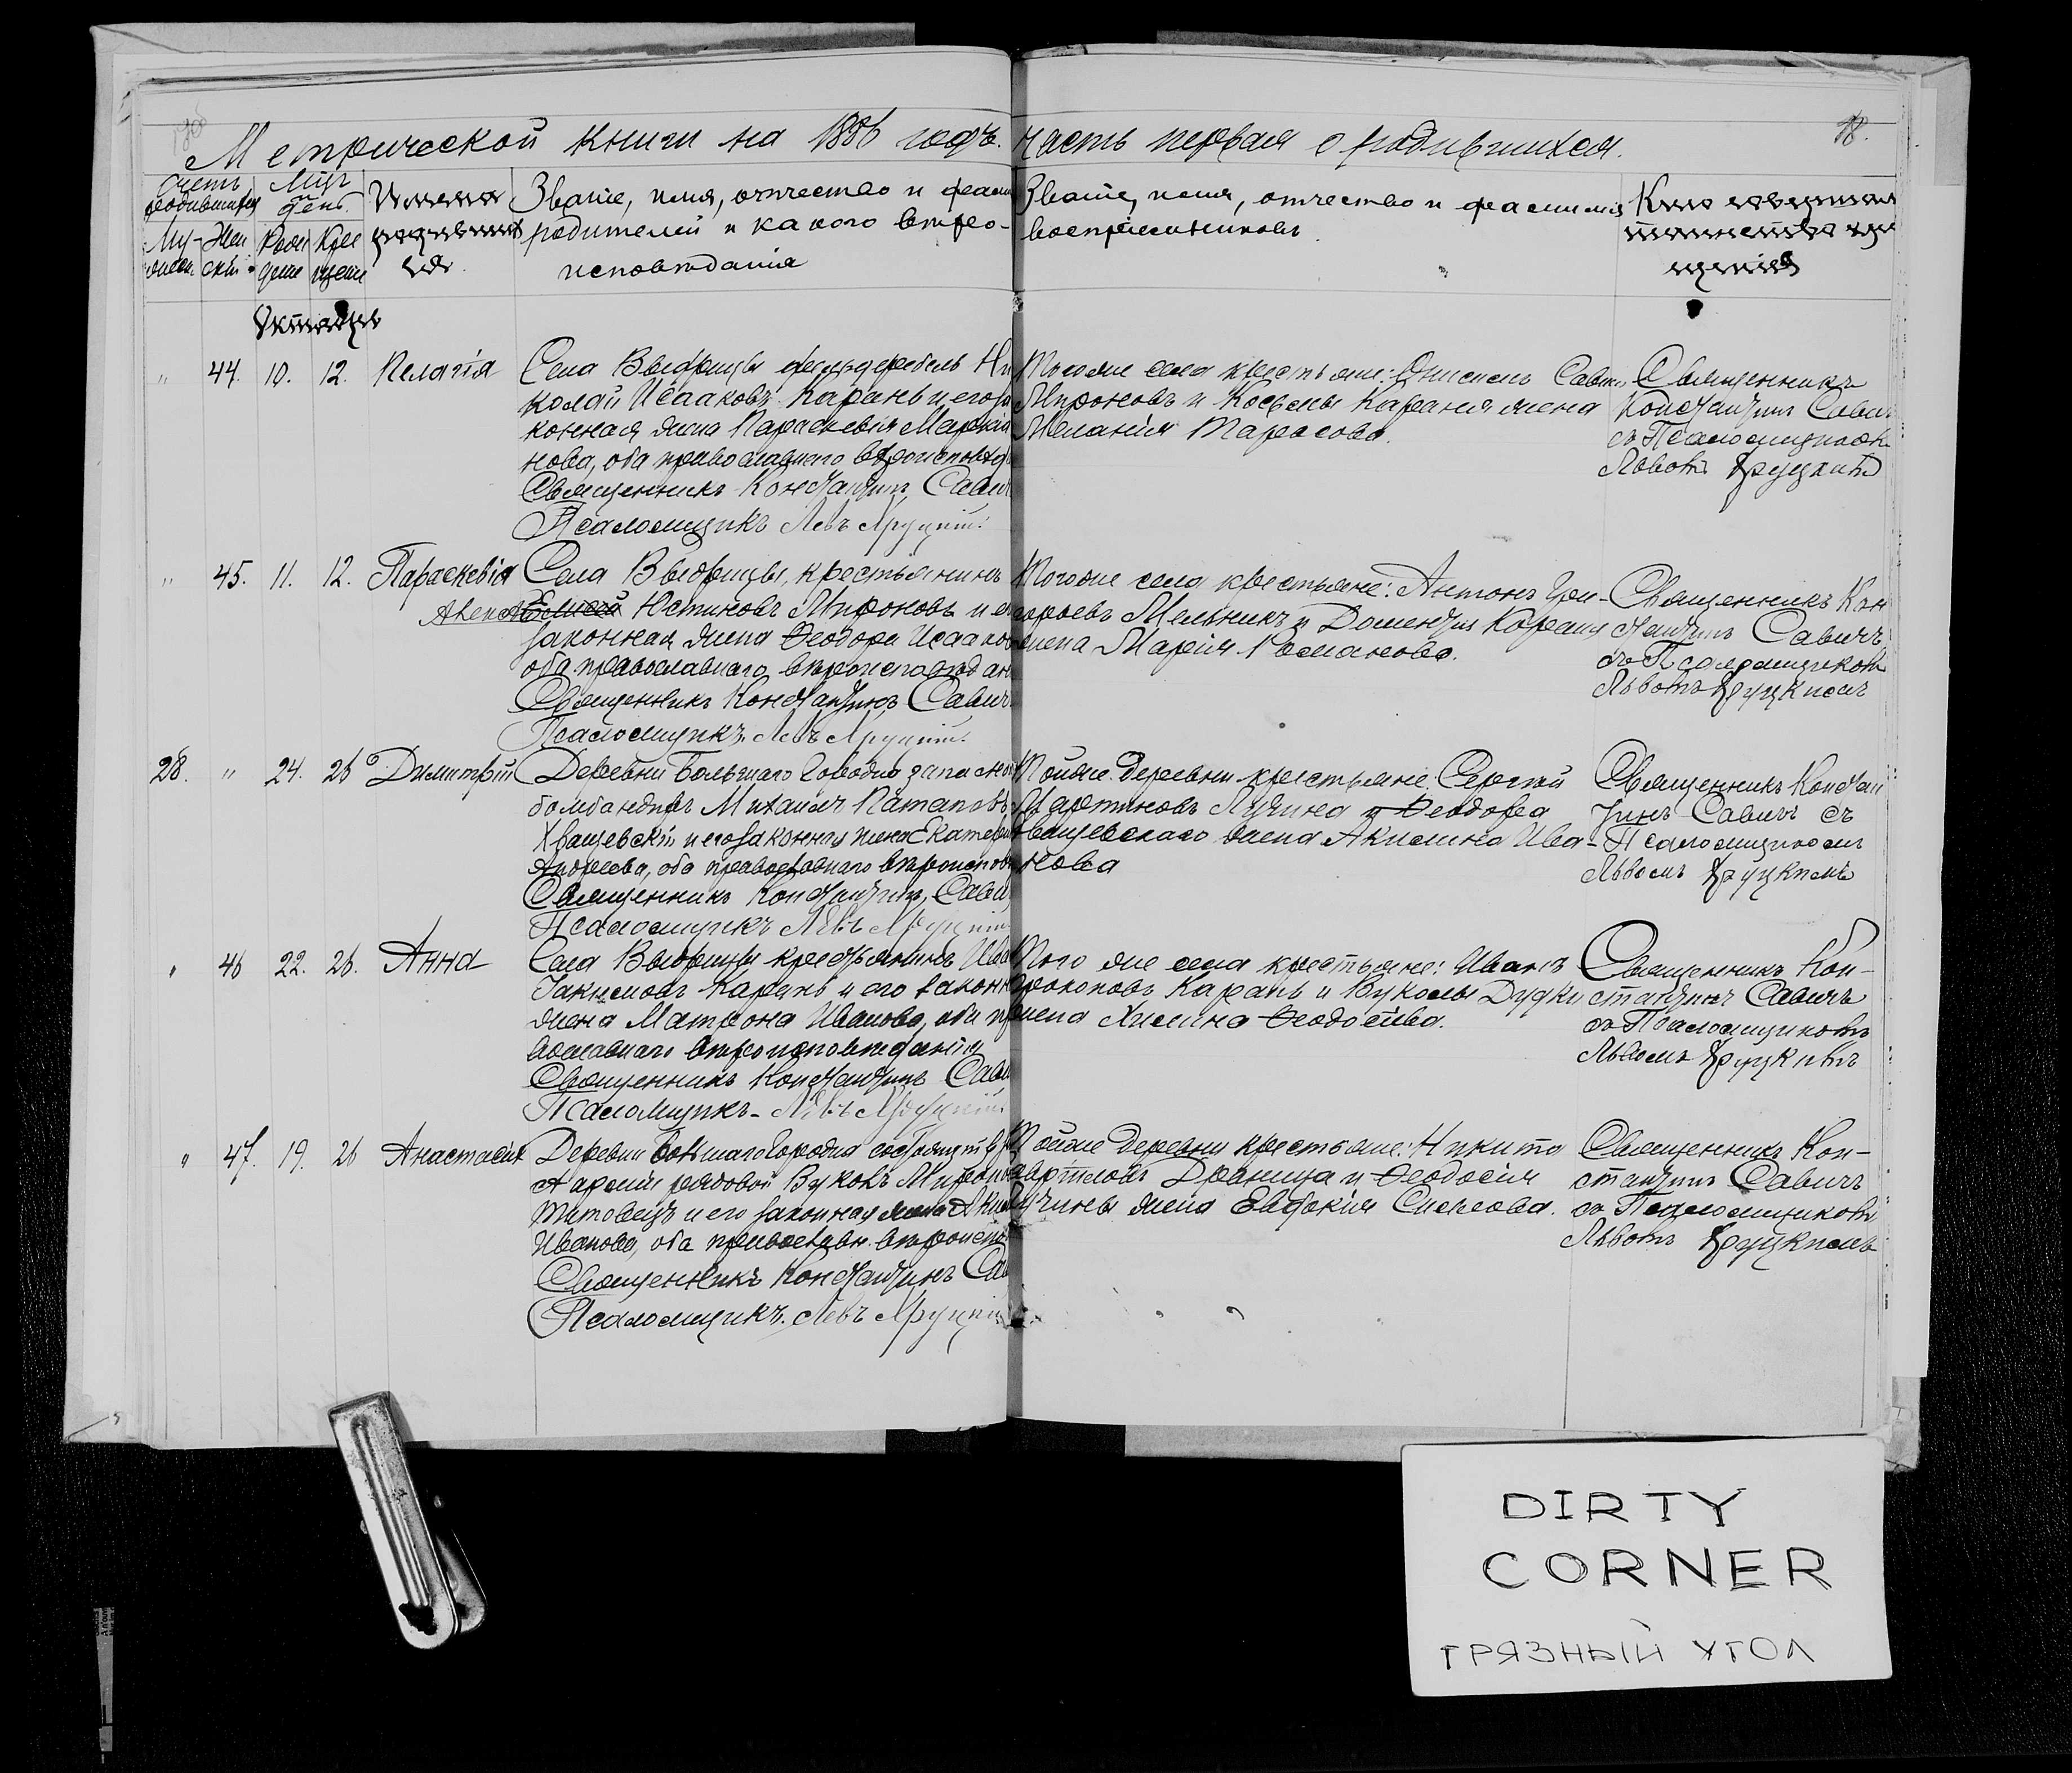 Метрической книги на 1886 годъ. часть первая о родившихся.
18.
Счетъ родившихся
Мужеск. Женскій
Мцъ день
Рожденія Крещенія
Имена родившихся.
Званіе, имя, отчество и фамилія
родителей и какого вѣро-
исповѣданія
Званіе, имя, отчество и фамилія
воспріемниковъ.
Кто совершалъ
таинство кре
щенія
Октябрь
" 44. 10. 12. Пелагія
Села Выдрицы фельдфебель Ни
колай Исааковъ Карань и его за
конная жена Параскевія Мартіа
нова, оба православнаго вѣроисповѣд
Священникъ Константинъ Савич
Псаломщикъ Левъ Яруцкій.
Тогоже села крестьяне: Онисимъ Савин
Мироновъ и Косьмы Караня жена
Меланія Тарасова.
Священникъ
Константинъ Савич
съ Псаломщикомъ
Львомъ Яруцкимъ
" 45. 11. 12. Параскевія
Села Выдрицы, крестьянинъ
Юстиновъ Мироновъ и его
законная жена Ѳеодора Исааков
оба православнаго вѣроисповѣдан
Священникъ Константинъ Савич
Псаломщикъ. Левъ Яруцкій.
Тогоже села крестьяне: Антонъ Гри-
горьевъ Мельникъ и Дометія Караня
жена Марія Романова.
Священникъ Кон
стантинъ Савичъ
съ Псаломщикомъ
Львомъ Яруцкимъ
28. " 24. 26 Димитрій
Деревни Большаго Городна запасной
бомбандиръ Михаилъ Патаповъ
Хващевскій и его законная жена Екатери
Андреева, оба православнаго вѣроисповѣ
Священникъ Константинъ Савич
Псаломщикъ Левъ Яруцкій
Тойже деревни крестьяне: Сергей
Мартиновъ Лучина и Ѳеодора
Хващевскаго жена Акилина Ива-
нова
Священникъ Констан
тинъ Савичъ съ
Псаломщикомъ
Львомъ Яруцкимъ
" 46 22. 26. Анна
Села Выдрицы крестьянинъ Ива
Іакимовъ Карань и его законн
жена Матрона Иванова, оба пра
вославнаго вѣроисповѣданія
Священникъ Константинъ Сави
Псаломщикъ Левъ Яруцкій.
Того же села крестьяне: Иванъ
Прокоповъ Карань и Вуколы Дудки
жена Химина Ѳеодосіева.
Священникъ Кон-
стантинъ Савичъ
съ Псаломщикомъ
Львомъ Яруцкимъ
" 47. 19. 26 Анастасія
Деревни Большаго Городна состоящій въ
Арміи рядовой Вуколъ Миронов
Титовецъ и его законная жена Акил
Иванова, оба православн. вѣроиспо
Священникъ Константинъ Сав
Псаломщикъ. Левъ Яруцкій
Тойже деревни крестьяне: Никита
Драница и Ѳеодосія
Лучины жена Евдокія Сисоева.
Священникъ Кон-
стантинъ Савичъ
съ Псаломщикомъ
Львомъ Яруцкимъ
DIRTY
CORNER
ГРЯЗНЫЙ УГОЛ